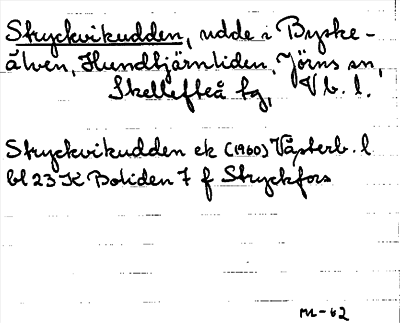 Stryckvikudden, udde i Byske-
älven, Hundtjärnliden, Jörns sn,
Skellefteå kg, Vb. l.
Stryckvikudden ek (1960) Västerb. l
bl 23 K Boliden 7 f Stryckfors
m-62